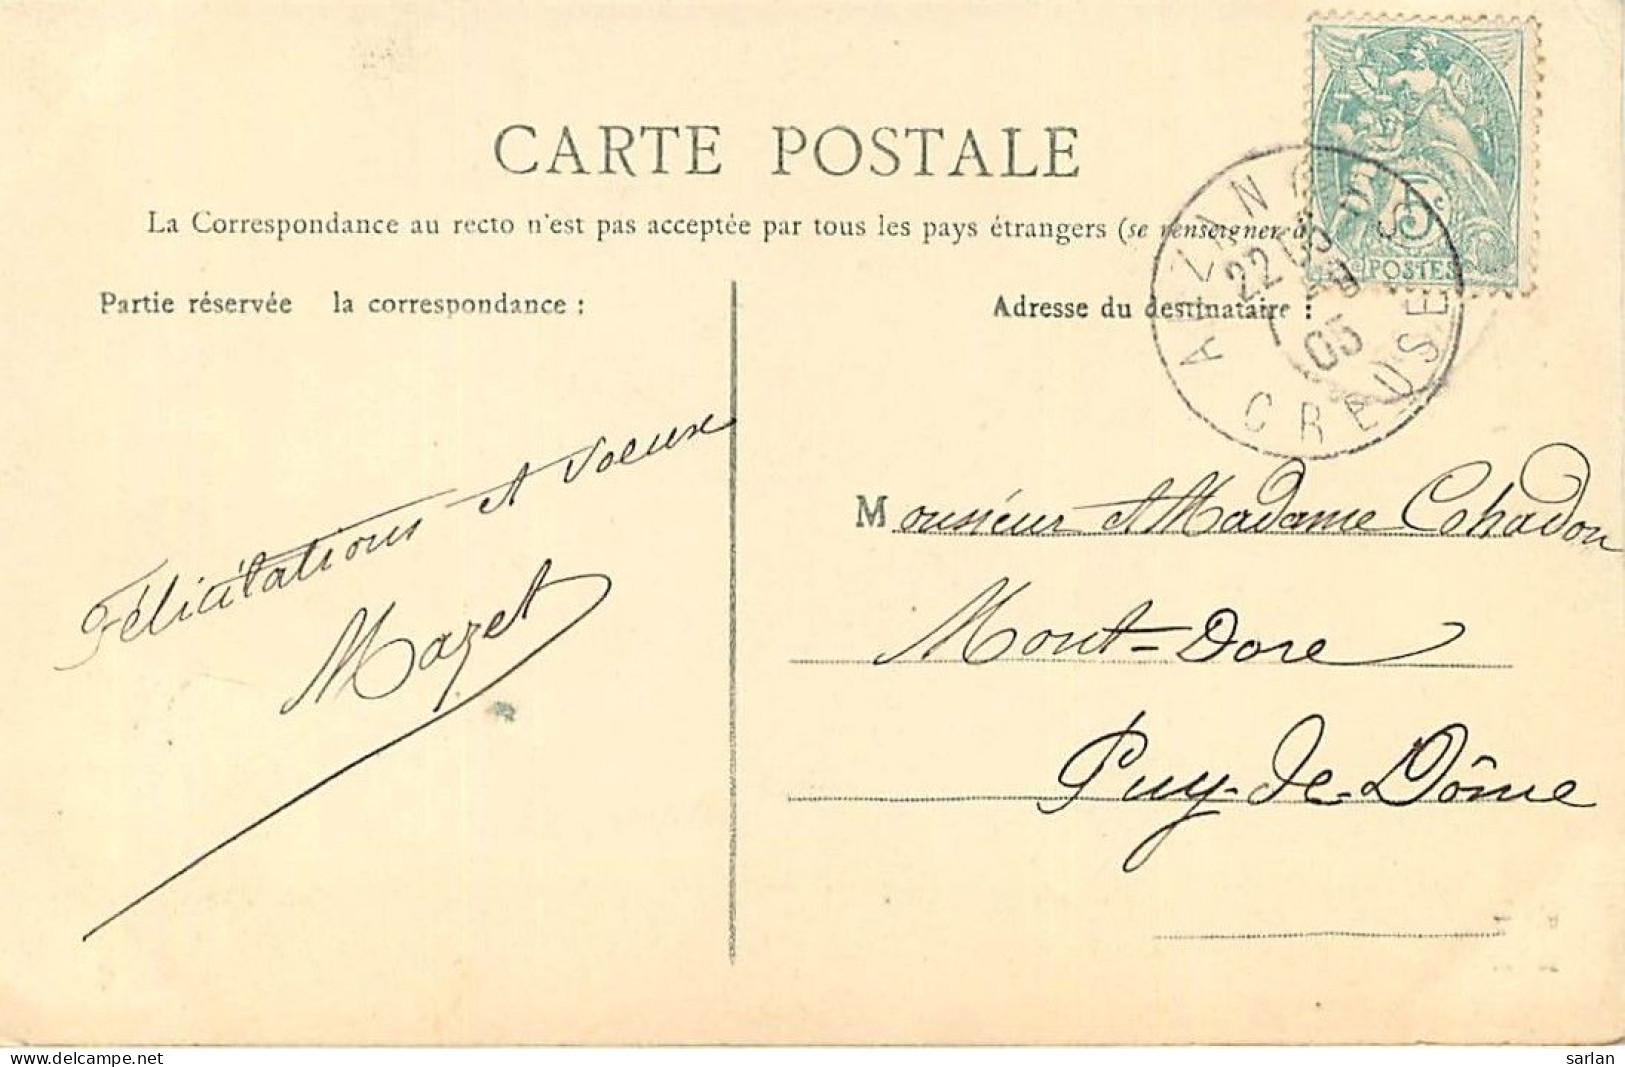 CARTE POSTALE
La Correspondance au recto n'est pas acceptée par tous les pays étrangers (se renseigner à
Partie réservée la correspondance :
Adresse du destinataire :
5c
POSTES
22
05
CREUSE
Félicitations et Voeux
Mazet
Monsieur et Madame Cohadon
Mont-Dore
Puy-de-Dôme
delcampe.net
sarlan